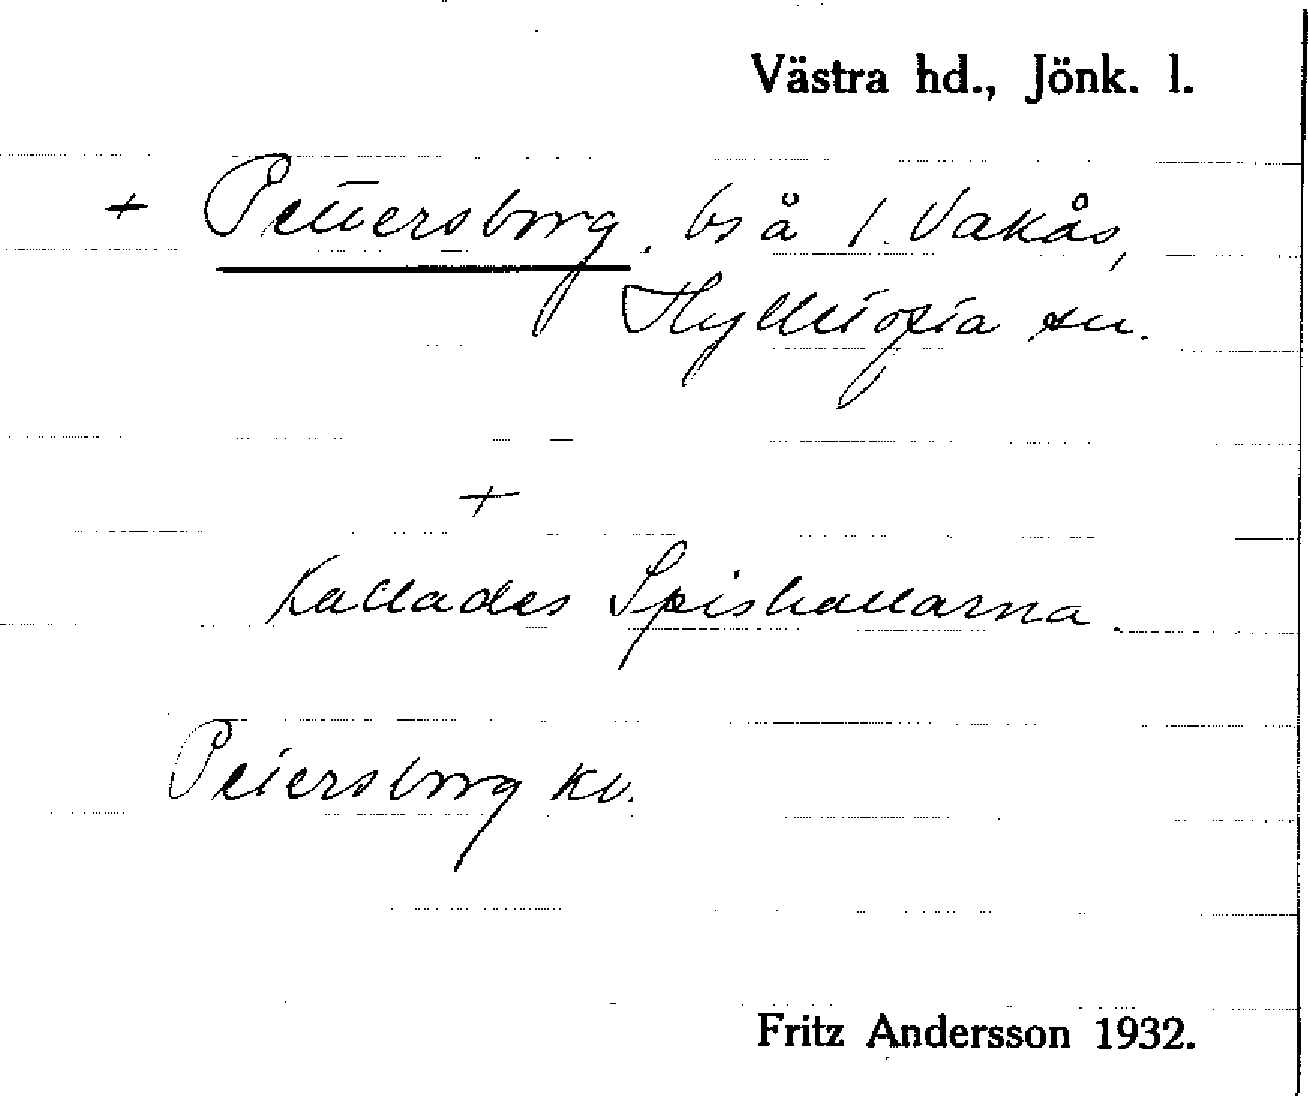 Västra hd., Jönk. l.
+ Pettersborg. bs å 1. Vakås,
Hylletofta sn.
+
Kallades Spishallarna
Petersborg kv.
Fritz Andersson 1932.